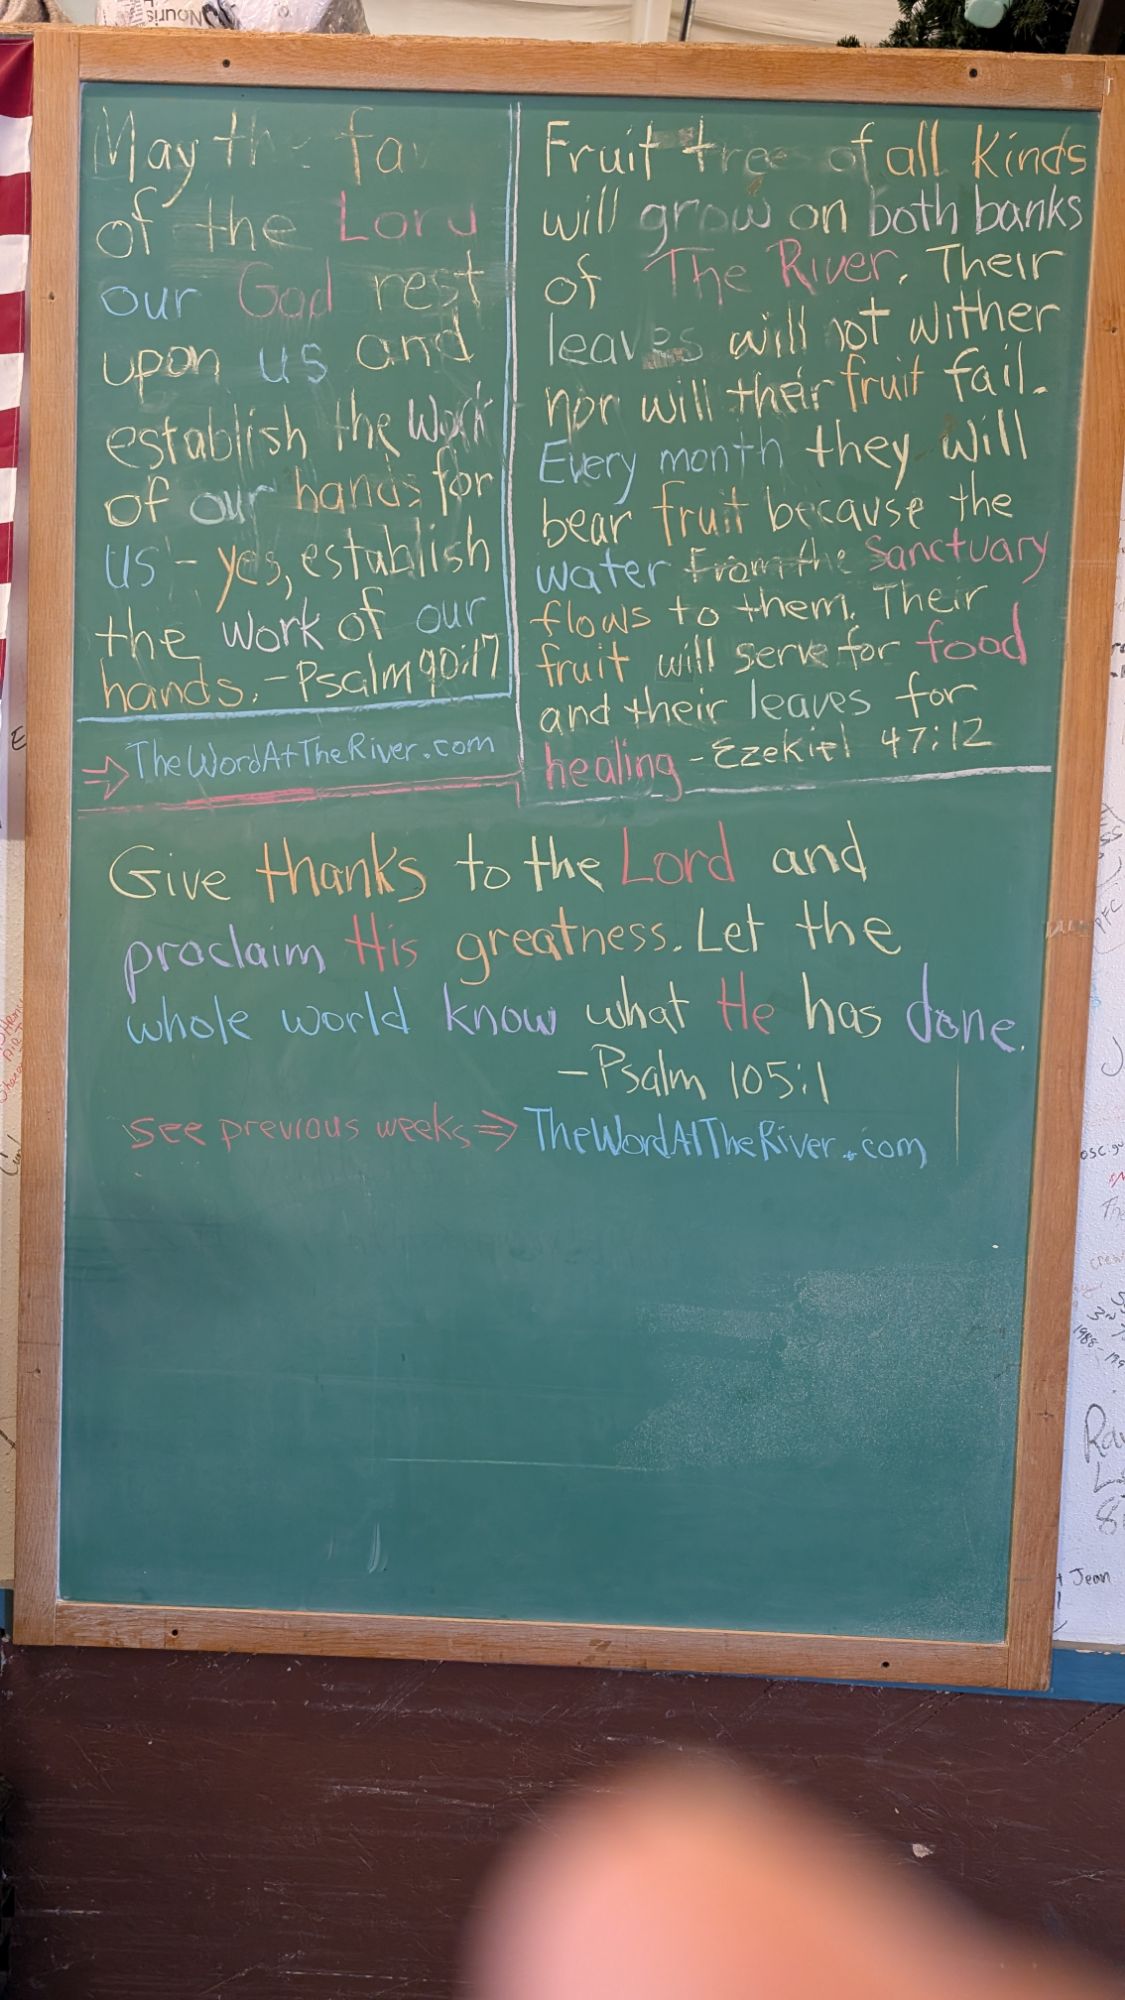 May the fa
of the Lord
our God rest
upon us and
establish the work
of our hands for
us - yes, establish
the work of our
hands. - Psalm 90:17
⇒ TheWordAtTheRiver.com
Fruit tree of all kinds
will grow on both banks
of The River. Their
leaves will not wither
nor will their fruit fail.
Every month they will
bear fruit because the
water from the Sanctuary
flows to them. Their
fruit will serve for food
and their leaves for
healing - Ezekiel 47:12
Give thanks to the Lord and
proclaim His greatness. Let the
whole world know what He has done.
- Psalm 105:1
see previous weeks ⇒ TheWordAtTheRiver.com
Jean